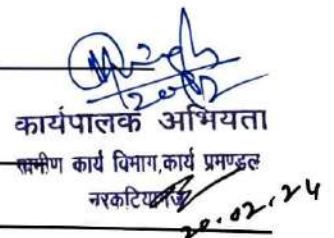 कार्यपालक अभियंता
ग्रामीण कार्य विभाग,कार्य प्रमण्डल
नरकटियागंज
20.02.24